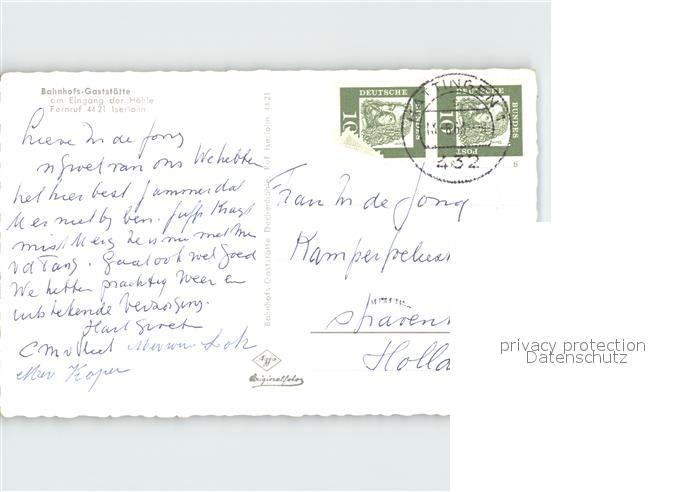 Bahnhofs-Gaststätte
am Eingang der Höhle
Fernruf 4421 Iserlohn
Lieve M de Jong
n groet van ons We hebben
het hier best jammer dat
U er niet by ben. Juffr Kragt
mist U erg ze is nu met Mw
vd Tang. Gaat ook wel goed
We hebben prachtig weer en
uitstekende verzorging.
Hart Groet
Mevr Koper
Bahnhofs-Gaststätte Dechenhöhle Ruf Iserlohn 4421
Agfa
Originalfoto
DEUTSCHE
BUNDES
POST
10
DEUTSCHE
BUNDES
POST
10
HATTINGEN
432
8
Frau M de Jong
Holla
privacy protection
Datenschutz